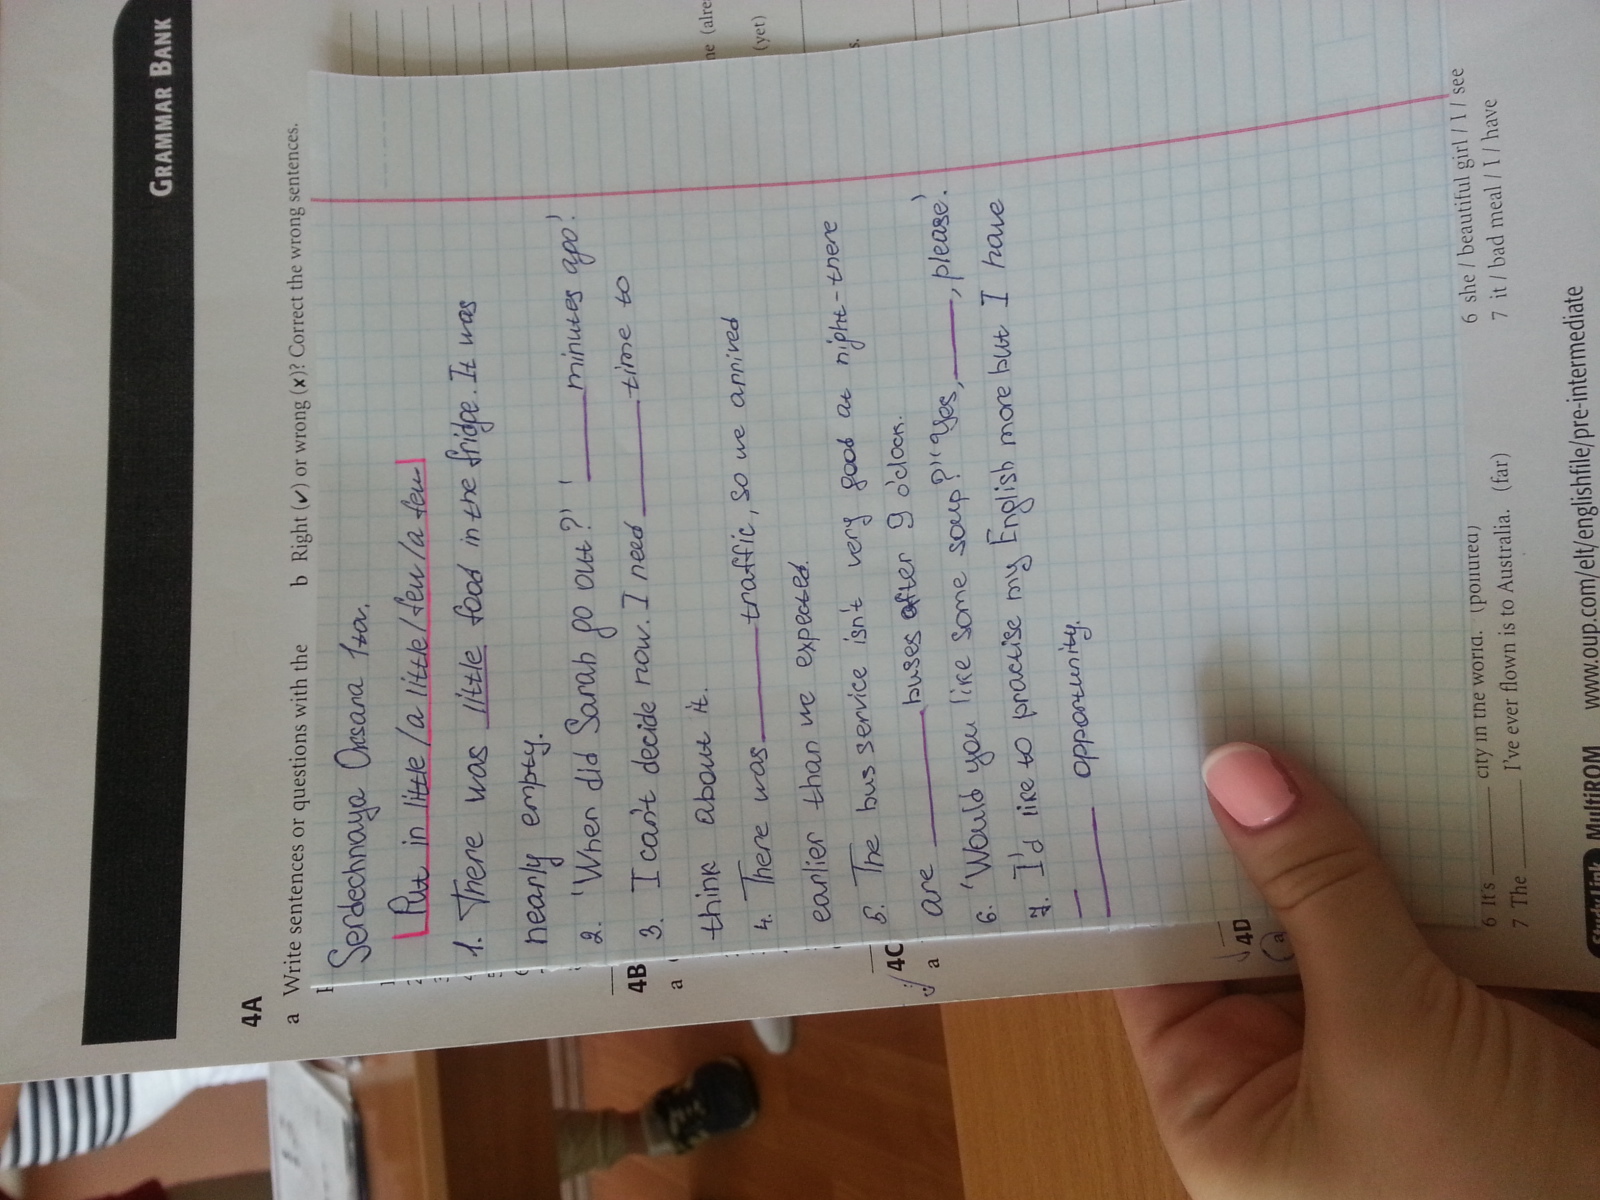 GRAMMAR BANK
4A
a Write sentences or questions with the
b Right (✓) or wrong (✗)? Correct the wrong sentences.
Serdechnaya Oksana
Put in little/a little/few/a few
1. There was little food in the fridge. It was
nearly empty.
2. 'When did Sarah go out?' '____ minutes ago'.
3. I can't decide now. I need ____ time to
think about it.
4. There was ____ traffic, so we arrived
earlier than we expected.
5. The bus service isn't very good at night-there
are ____ buses after 9 o'clock.
6. 'Would you like some soup?' 'Yes, ____, please'.
7. I'd like to practise my English more but I have
____ opportunity.
(yet)
4B
a
4C
a
4D
a
6 It's ____ city in the world. (polluted)
7 The ____ I've ever flown is to Australia. (far)
6 she / beautiful girl / I / see
7 it / bad meal / I / have
Study Link MultiROM www.oup.com/elt/englishfile/pre-intermediate